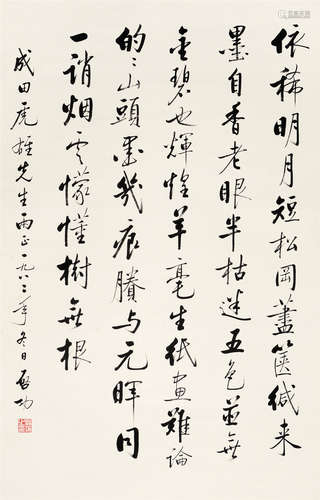 依稀明月短松岡藎篋緘来
墨自香老眼半枯迷五色並無
金碧也輝煌羊毫生紙畫難論
的〻山頭墨幾痕賸与元暉同
一誚烟云懞懂樹無根
成田虎雄先生雨正一九八三年冬日啓功